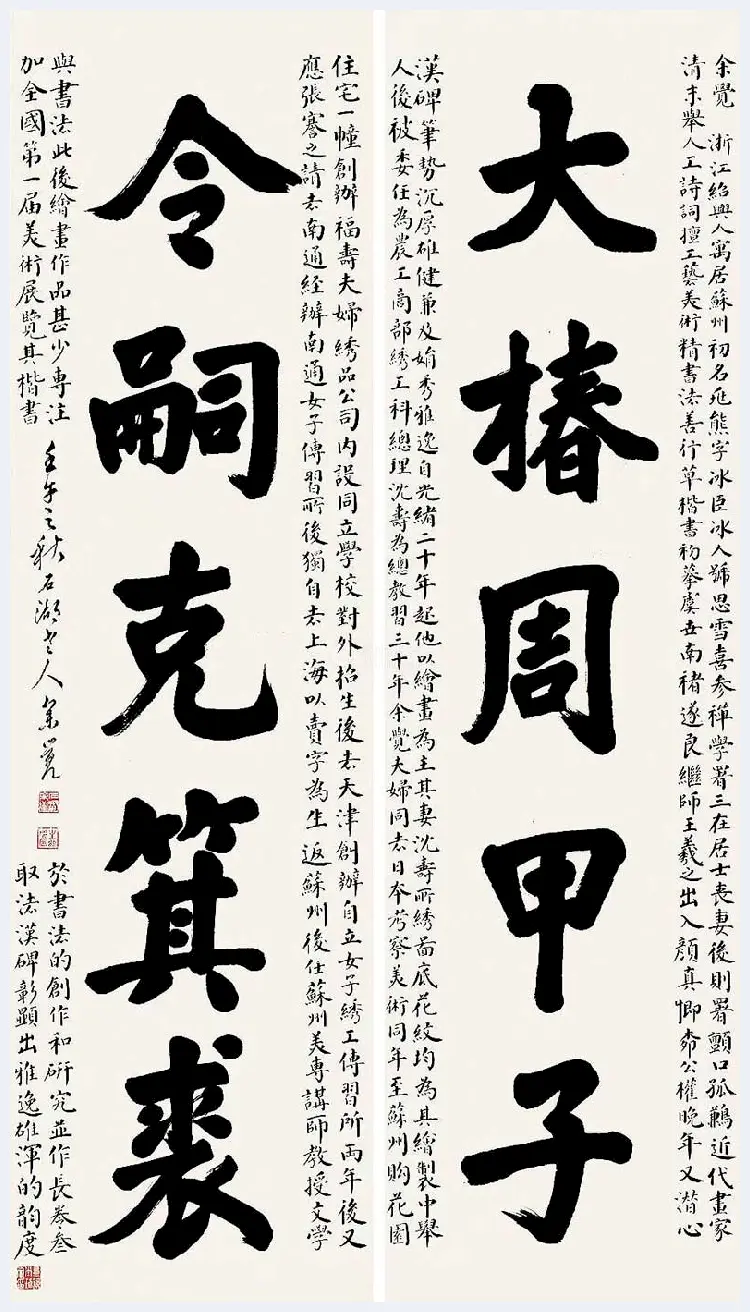 余覺 浙江紹興人寓居蘇州初名兆熊字冰臣冰人號思雪喜參禪學署三在居士喪妻後則署顫口孤鶼近代畫家
清末舉人工詩詞擅工藝美術精書法善行草楷書初摹虞世南褚遂良繼師王羲之出入顏真卿柳公權晚年又潛心
大椿周甲子
漢碑筆勢沉厚雄健兼及娟秀雅逸自光緒二十年起他以繪畫為主其妻沈壽所綉畫底花紋均為其繪製中舉
人後被委任為農工商部綉工科總理沈壽為總教習三十年余覺夫婦同去日本考察美術同年至蘇州購花園
住宅一幢創辦福壽夫婦綉品公司内設同立學校對外招生後去天津創辦自立女子綉工傳習所兩年後又
應張謇之請去南通經辦南通女子傳習所後獨自去上海以賣字為生返蘇州後任蘇州美專講師教授文學
令嗣克箕裘
與書法此後繪畫作品甚少專注
於書法的創作和研究並作長卷叁
加全國第一届美術展覽其楷書
取法漢碑彰顯出雅逸雄渾的韵度
壬午之秋石湖老人余覺